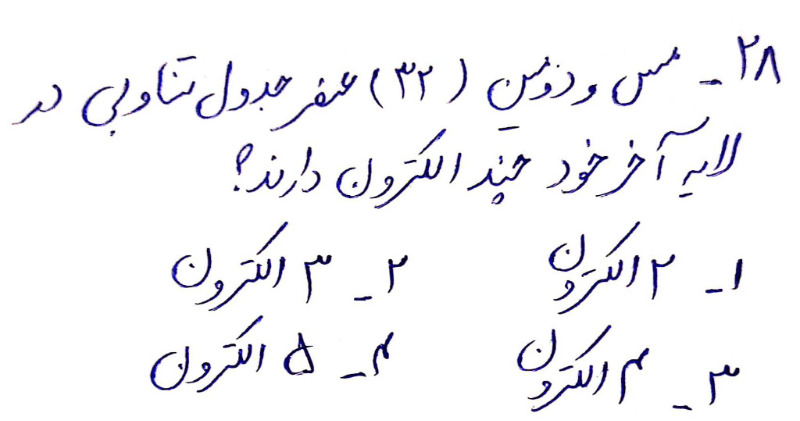 ۲۸ - سی و دومین (۳۲) عنصر جدول تناوبی در
لایه آخر خود چند الکترون دارند؟
۱ - ۲ الکترون ۲ - ۳ الکترون
۳ - ۴ الکترون ۴ - ۵ الکترون